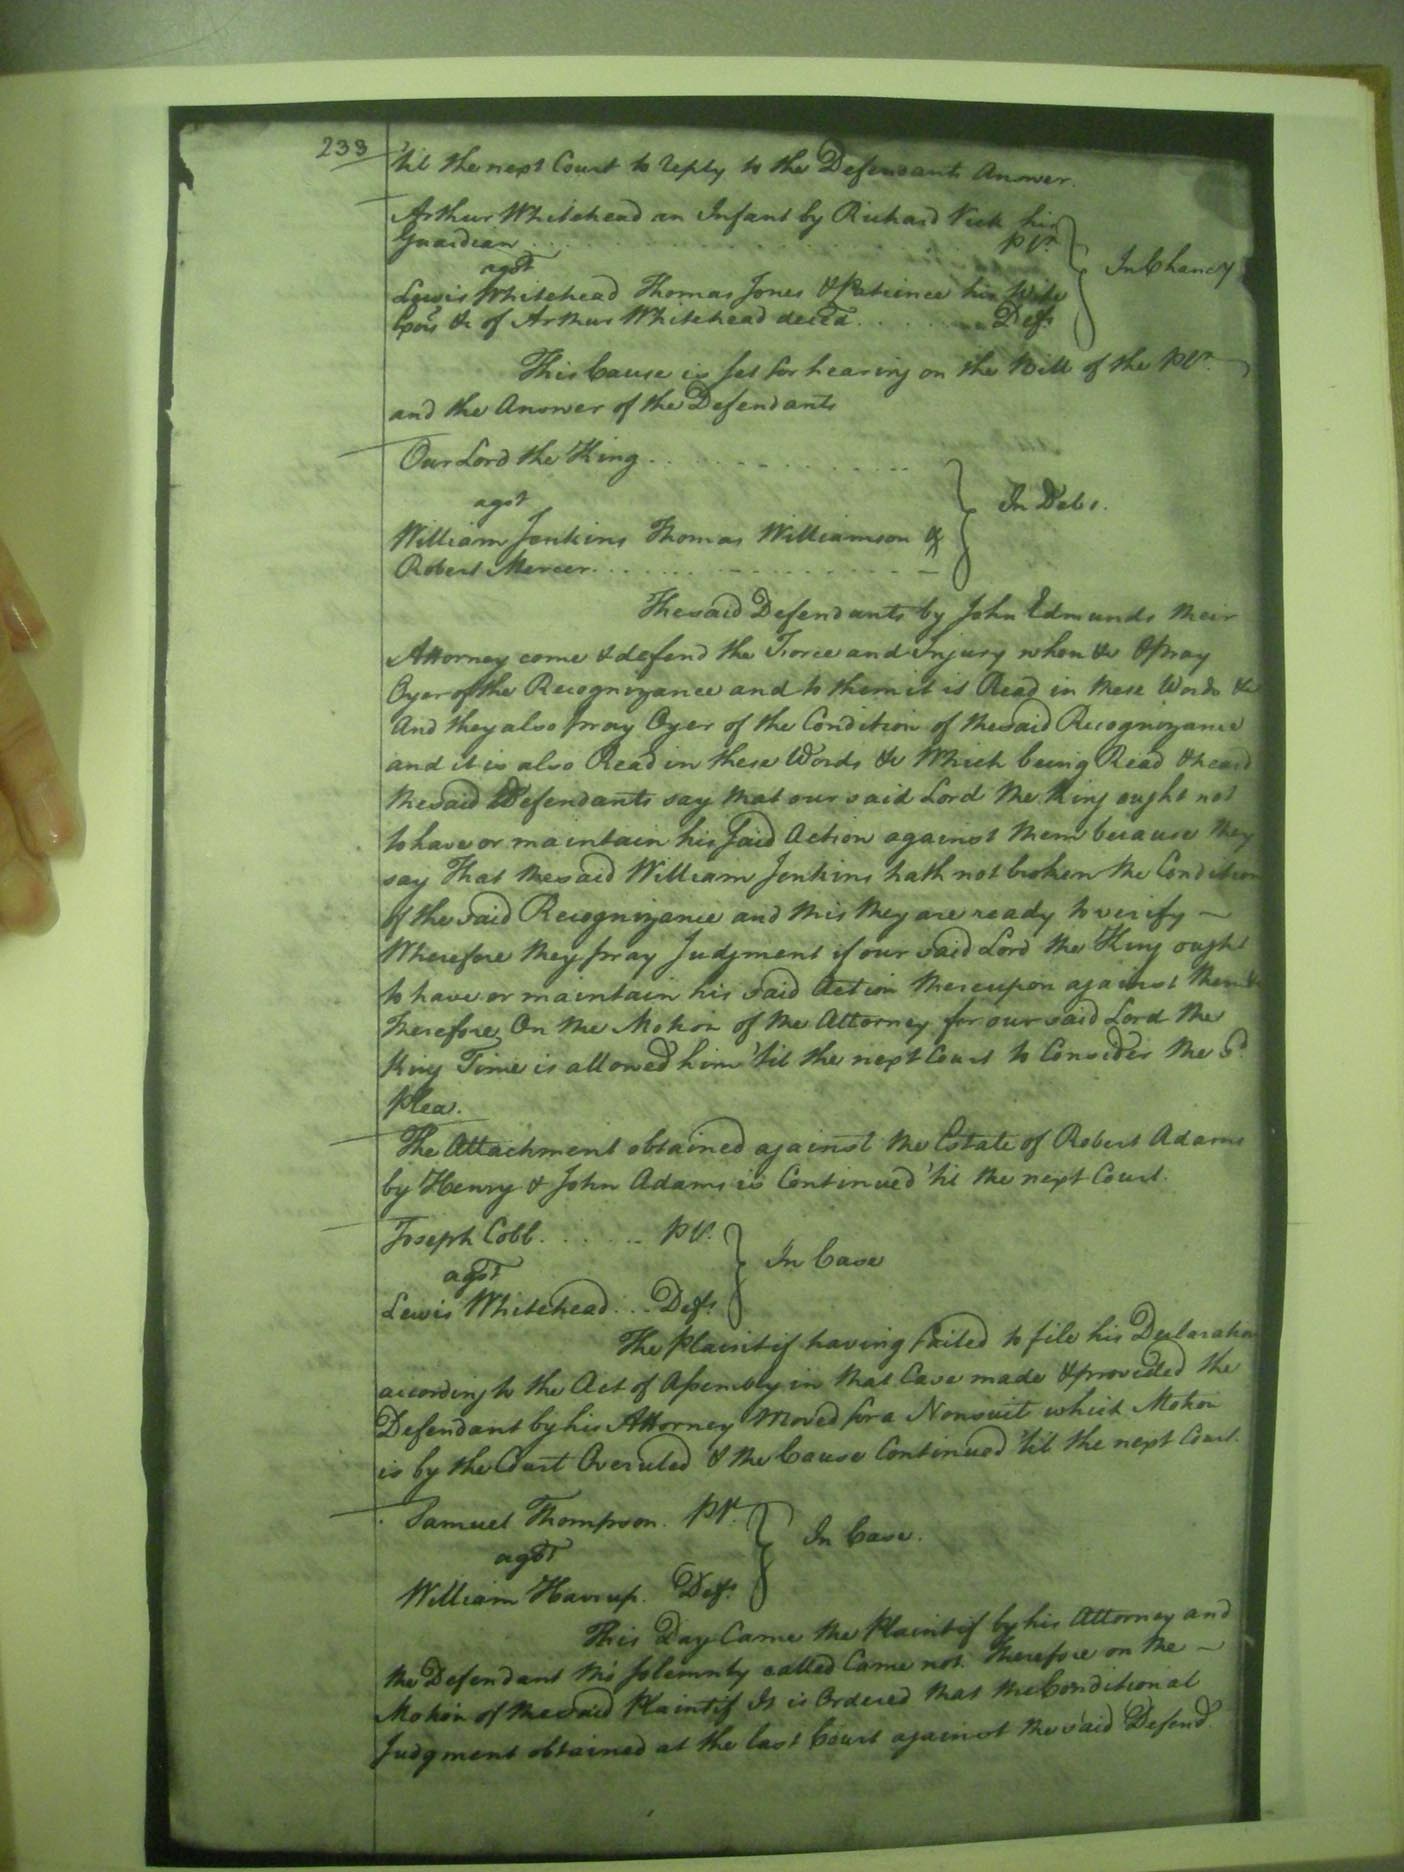 233
'til the next Court to reply to the Defendants Answer.
Arthur Whitehead an Infant by Richard Vick his
Guardian . . . . . . . . . . Plt.
agst
In Chancy
Lewis Whitehead Thomas Jones & Patience his Wife
Exors &c of Arthur Whitehead deced . . . . . . Defts
This Cause is set for hearing on the Bill of the Plt.
and the Answer of the Defendants
Our Lord the King . . . . . . . . . .
agst
In Debt.
William Jenkins Thomas Williamson &
Robert Mercer. . . . . . . . . . .
The said Defendants by John Edmunds their
Attorney come & defend the Force and Injury when &c & pray
Oyer of the Recognizance and to them it is Read in these Words &c
And they also pray Oyer of the Condition of the said Recognizance
and it is also Read in these Words &c Which being Read & heard
the said Defendants say that our said Lord the King ought not
to have or maintain his said Action against them because they
say That the said William Jenkins hath not broken the Condition
of the said Recognizance and this they are ready to verify —
Wherefore they pray Judgment if our said Lord the King ought
to have or maintain his said Action thereupon against them &c
Therefore On the Motion of the Attorney for our said Lord the
King Time is allowed him 'til the next Court to Consider the sd
Plea.
The Attachment obtained against the Estate of Robert Adams
by Henry & John Adams is Continued 'til the next Court.
Joseph Cobb . . . . . . Plt.
agst
In Case
Lewis Whitehead . . . Deft.
The Plaintif having failed to file his Declaration
according to the Act of Assembly in that Case made & provided the
Defendant by his Attorney Moved for a Nonsuit which Motion
is by the Court Overuled & the Cause Continued 'til the next Court.
Samuel Thompson. Plt.
agst
In Case.
William Harrup. Deft.
This Day Came the Plaintif by his Attorney and
the Defendant tho' solemnly called Came not. Therefore on the —
Motion of the said Plaintif It is Ordered that the Conditional
Judgment obtained at the last Court against the said Defend.